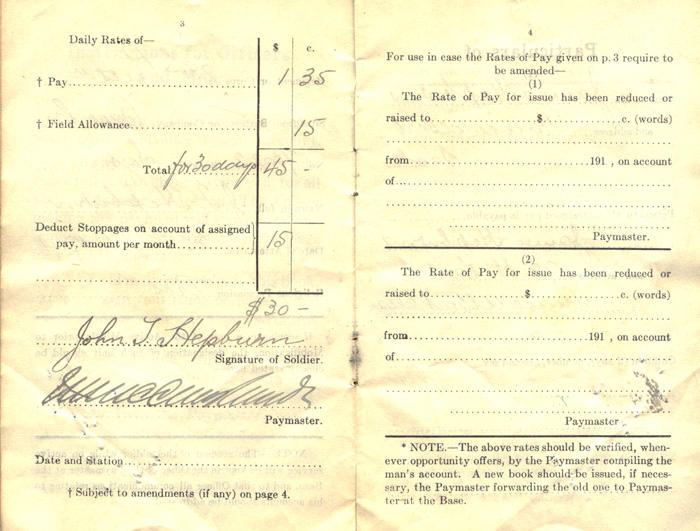 3
Daily Rates of—
$ c.
† Pay.............. 1 35
† Field Allowance.............. 15
Total for 30 days 45 -
Deduct Stoppages on account of assigned
pay, amount per month.............. 15
$30 -
John T. Hepburn
Signature of Soldier.
Paymaster.
Date and Station..............
† Subject to amendments (if any) on page 4.
4
For use in case the Rates of Pay given on p. 3 require to
be amended—
(1)
The Rate of Pay for issue has been reduced or
raised to..............$..............c. (words)
from..............191 , on account
of..............
Paymaster.
(2)
The Rate of Pay for issue has been reduced or
raised to..............$..............c. (words)
from..............191 , on account
of..............
Paymaster
* NOTE.—The above rates should be verified, when-
ever opportunity offers, by the Paymaster compiling the
man's account. A new book should be issued, if neces-
sary, the Paymaster forwarding the old one to Pay-
master at the Base.